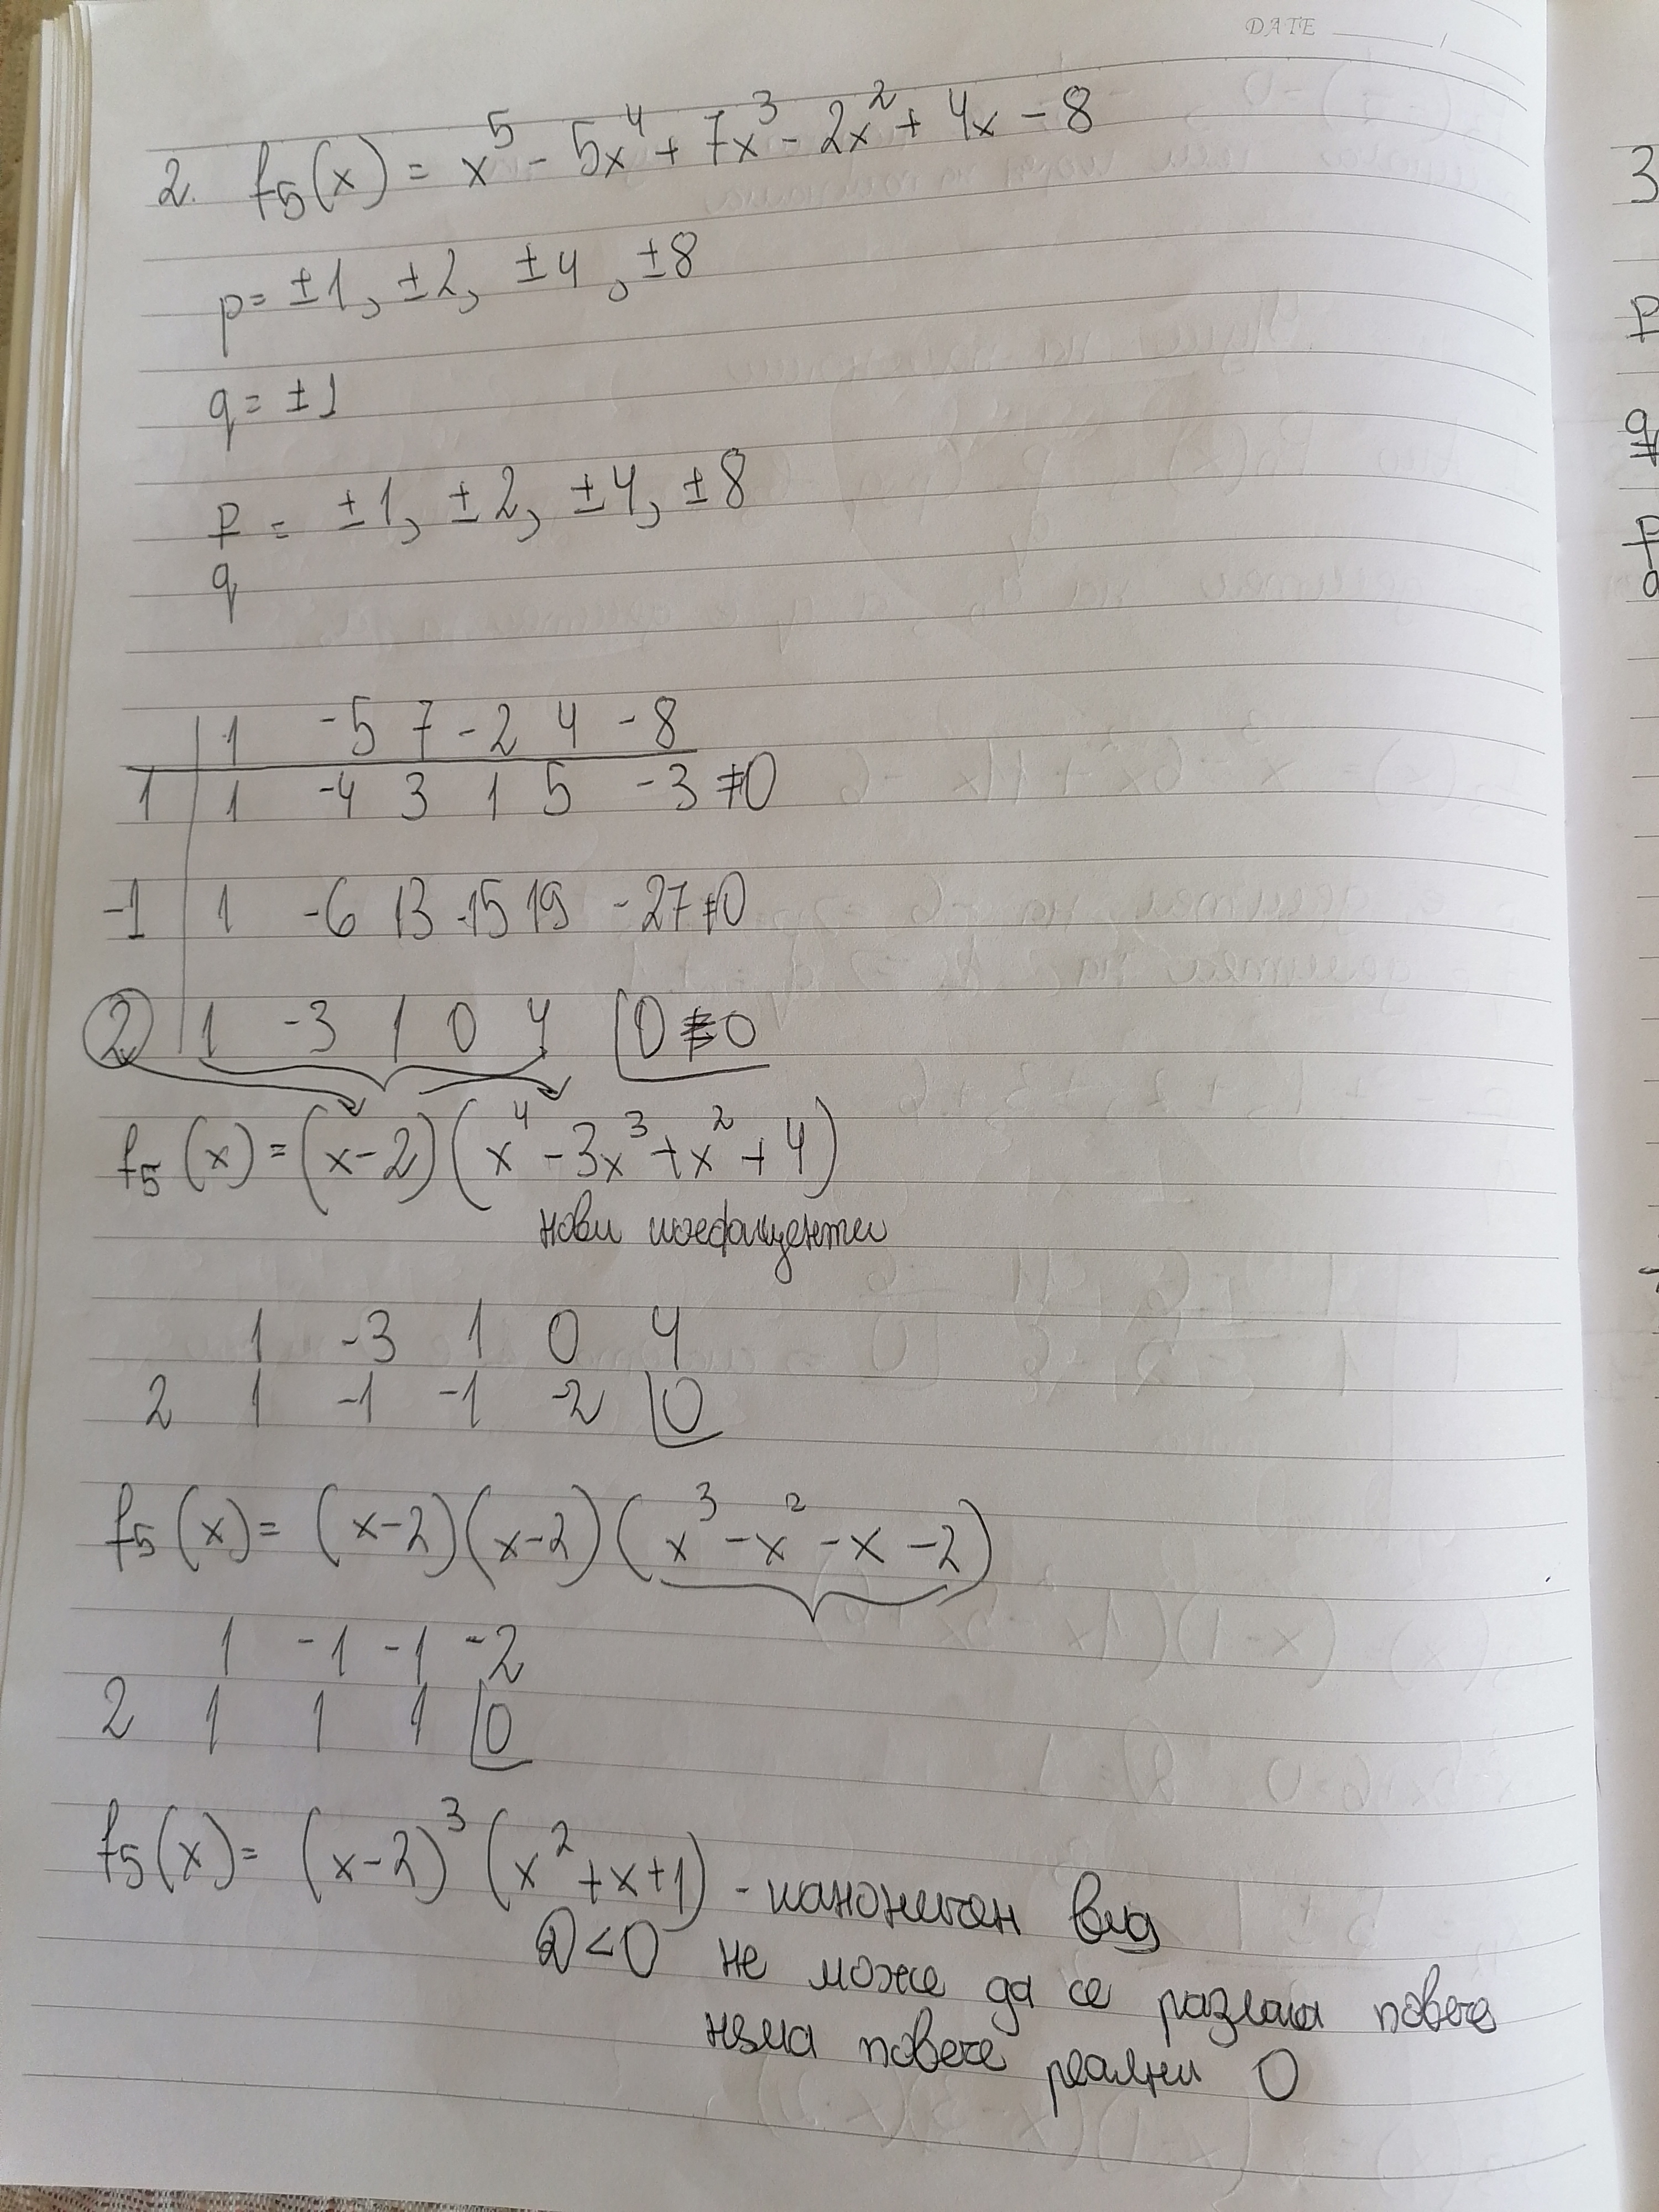 DATE
2. f₅(x) = x⁵ - 5x⁴ + 7x³ - 2x² + 4x - 8
p = ±1, ±2, ±4, ±8
q = ±1
p/q = ±1, ±2, ±4, ±8
1 -5 7 -2 4 -8
1 1 -4 3 1 5 -3 ≠0
-1 1 -6 13 -15 19 -27 ≠0
2 1 -3 1 0 4 0 = 0
f₅(x) = (x-2)(x⁴ - 3x³ + x² + 4)
нови коефициенти
1 -3 1 0 4
2 1 -1 -1 -2 0
f₅(x) = (x-2)(x-2)(x³ - x² - x - 2)
1 -1 -1 -2
2 1 1 1 0
f₅(x) = (x-2)³ (x² + x + 1) - каноничен вид
D < 0 не може да се разлага повече
няма повече реални 0